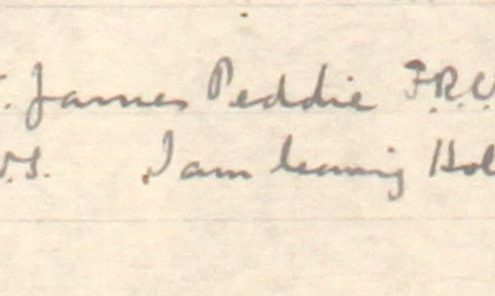 . James Peddie F.R.C
V.S. I am leaving Hol